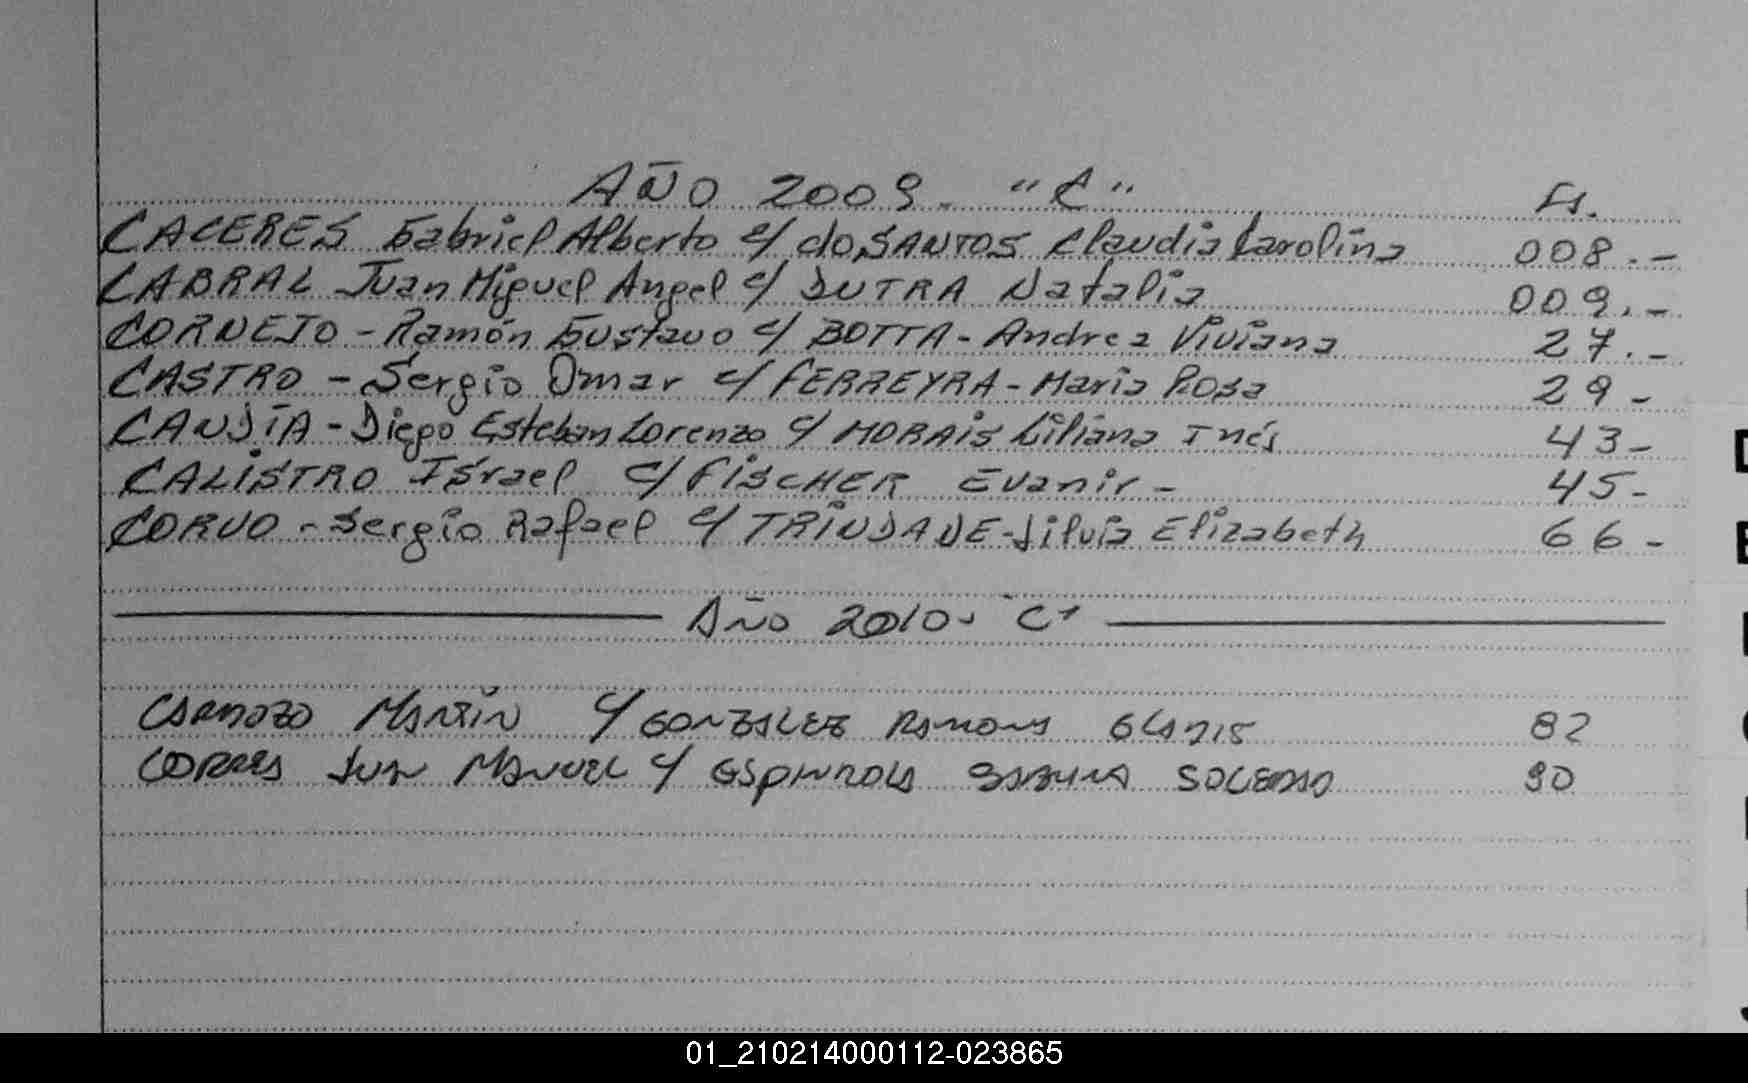 AÑO 2009. "C" Fs.
CACERES Gabriel Alberto c/ doSANTOS Claudia Carolina 008.-
CABRAL Juan Miguel Angel c/ DUTRA Natalia 009.-
CORNEJO - Ramón Gustavo c/ BOTTA - Andrea Viviana 27.-
CASTRO - Sergio Omar c/ FERREYRA - Maria Rosa 29-
CANDÍA - Diego Esteban Lorenzo c/ MORAIS Liliana Inés 43-
CALISTRO Israel c/ FISCHER Evanir - 45-
CORVO - Sergio Rafael c/ TRINDADE - Silvia Elizabeth 66-
Año 2010. "C"
CARDOZO MARTIN c/ GONZALEZ RAMONA GLADIS 82
CORREA JUAN MANUEL c/ ESPINDOLA SABINA SOLEDAD 90
D
E
01_210214000112-023865